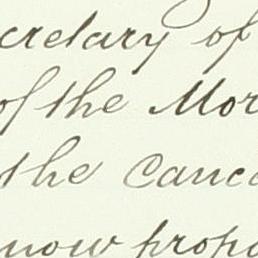 cretary of
of the Mor
the Cance
now propo